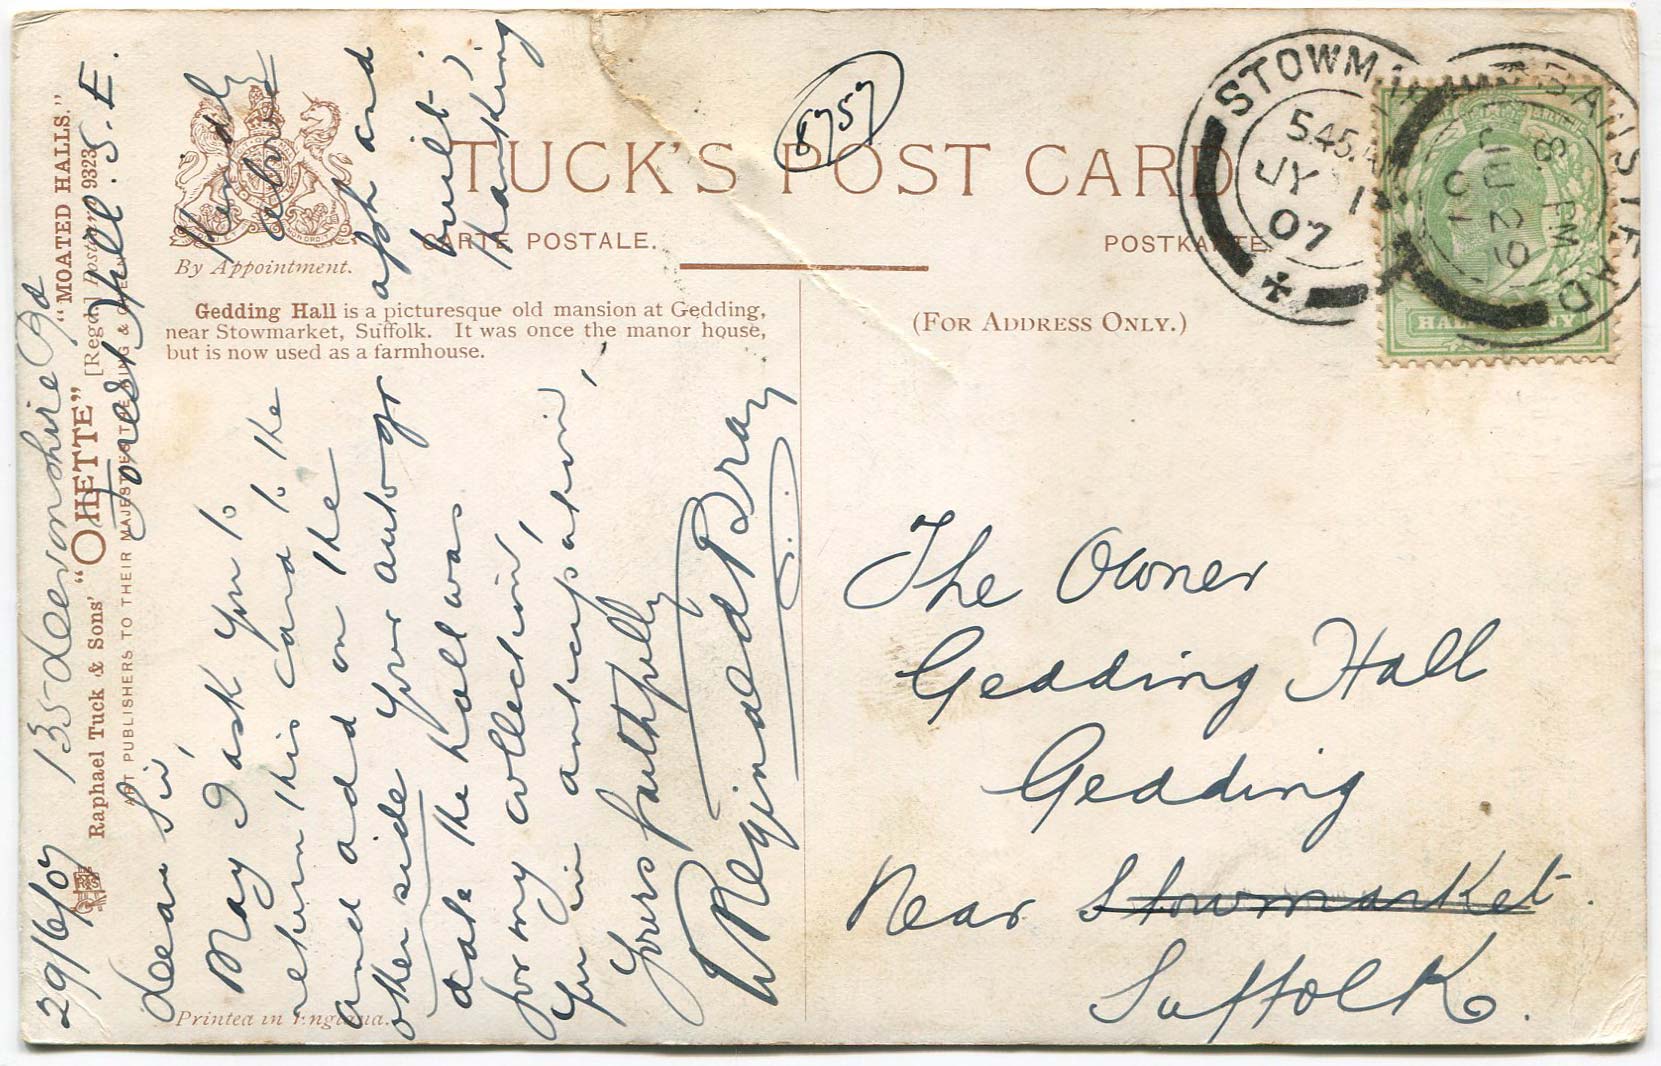 TUCK'S POST CARD
CARTE POSTALE.
POSTKARTE
By Appointment.
(FOR ADDRESS ONLY.)
Gedding Hall is a picturesque old mansion at Gedding,
near Stowmarket, Suffolk. It was once the manor house,
but is now used as a farmhouse.
Printed in England.
"MOATED HALLS."
Raphael Tuck & Sons' "OILETTE" [Regd.] Postcard 9323
ART PUBLISHERS TO THEIR MAJESTIES THE KING &
8757
29/6/07 135 Devonshire Rd
Forest Hill. S.E.
Dear Sir,
May I ask you to kindly
return this card to the above
and add on the
other side your autograph and
date the hall was built
for my collection, Thanking
you in anticipation,
Yours faithfully
W Reginald Bray
The Owner
Gedding Hall
Gedding
Near Stowmarket.
Suffolk.
STOWM
5.45 AM
JY 1
07
8. PM
JU 29
07
HALFPENNY